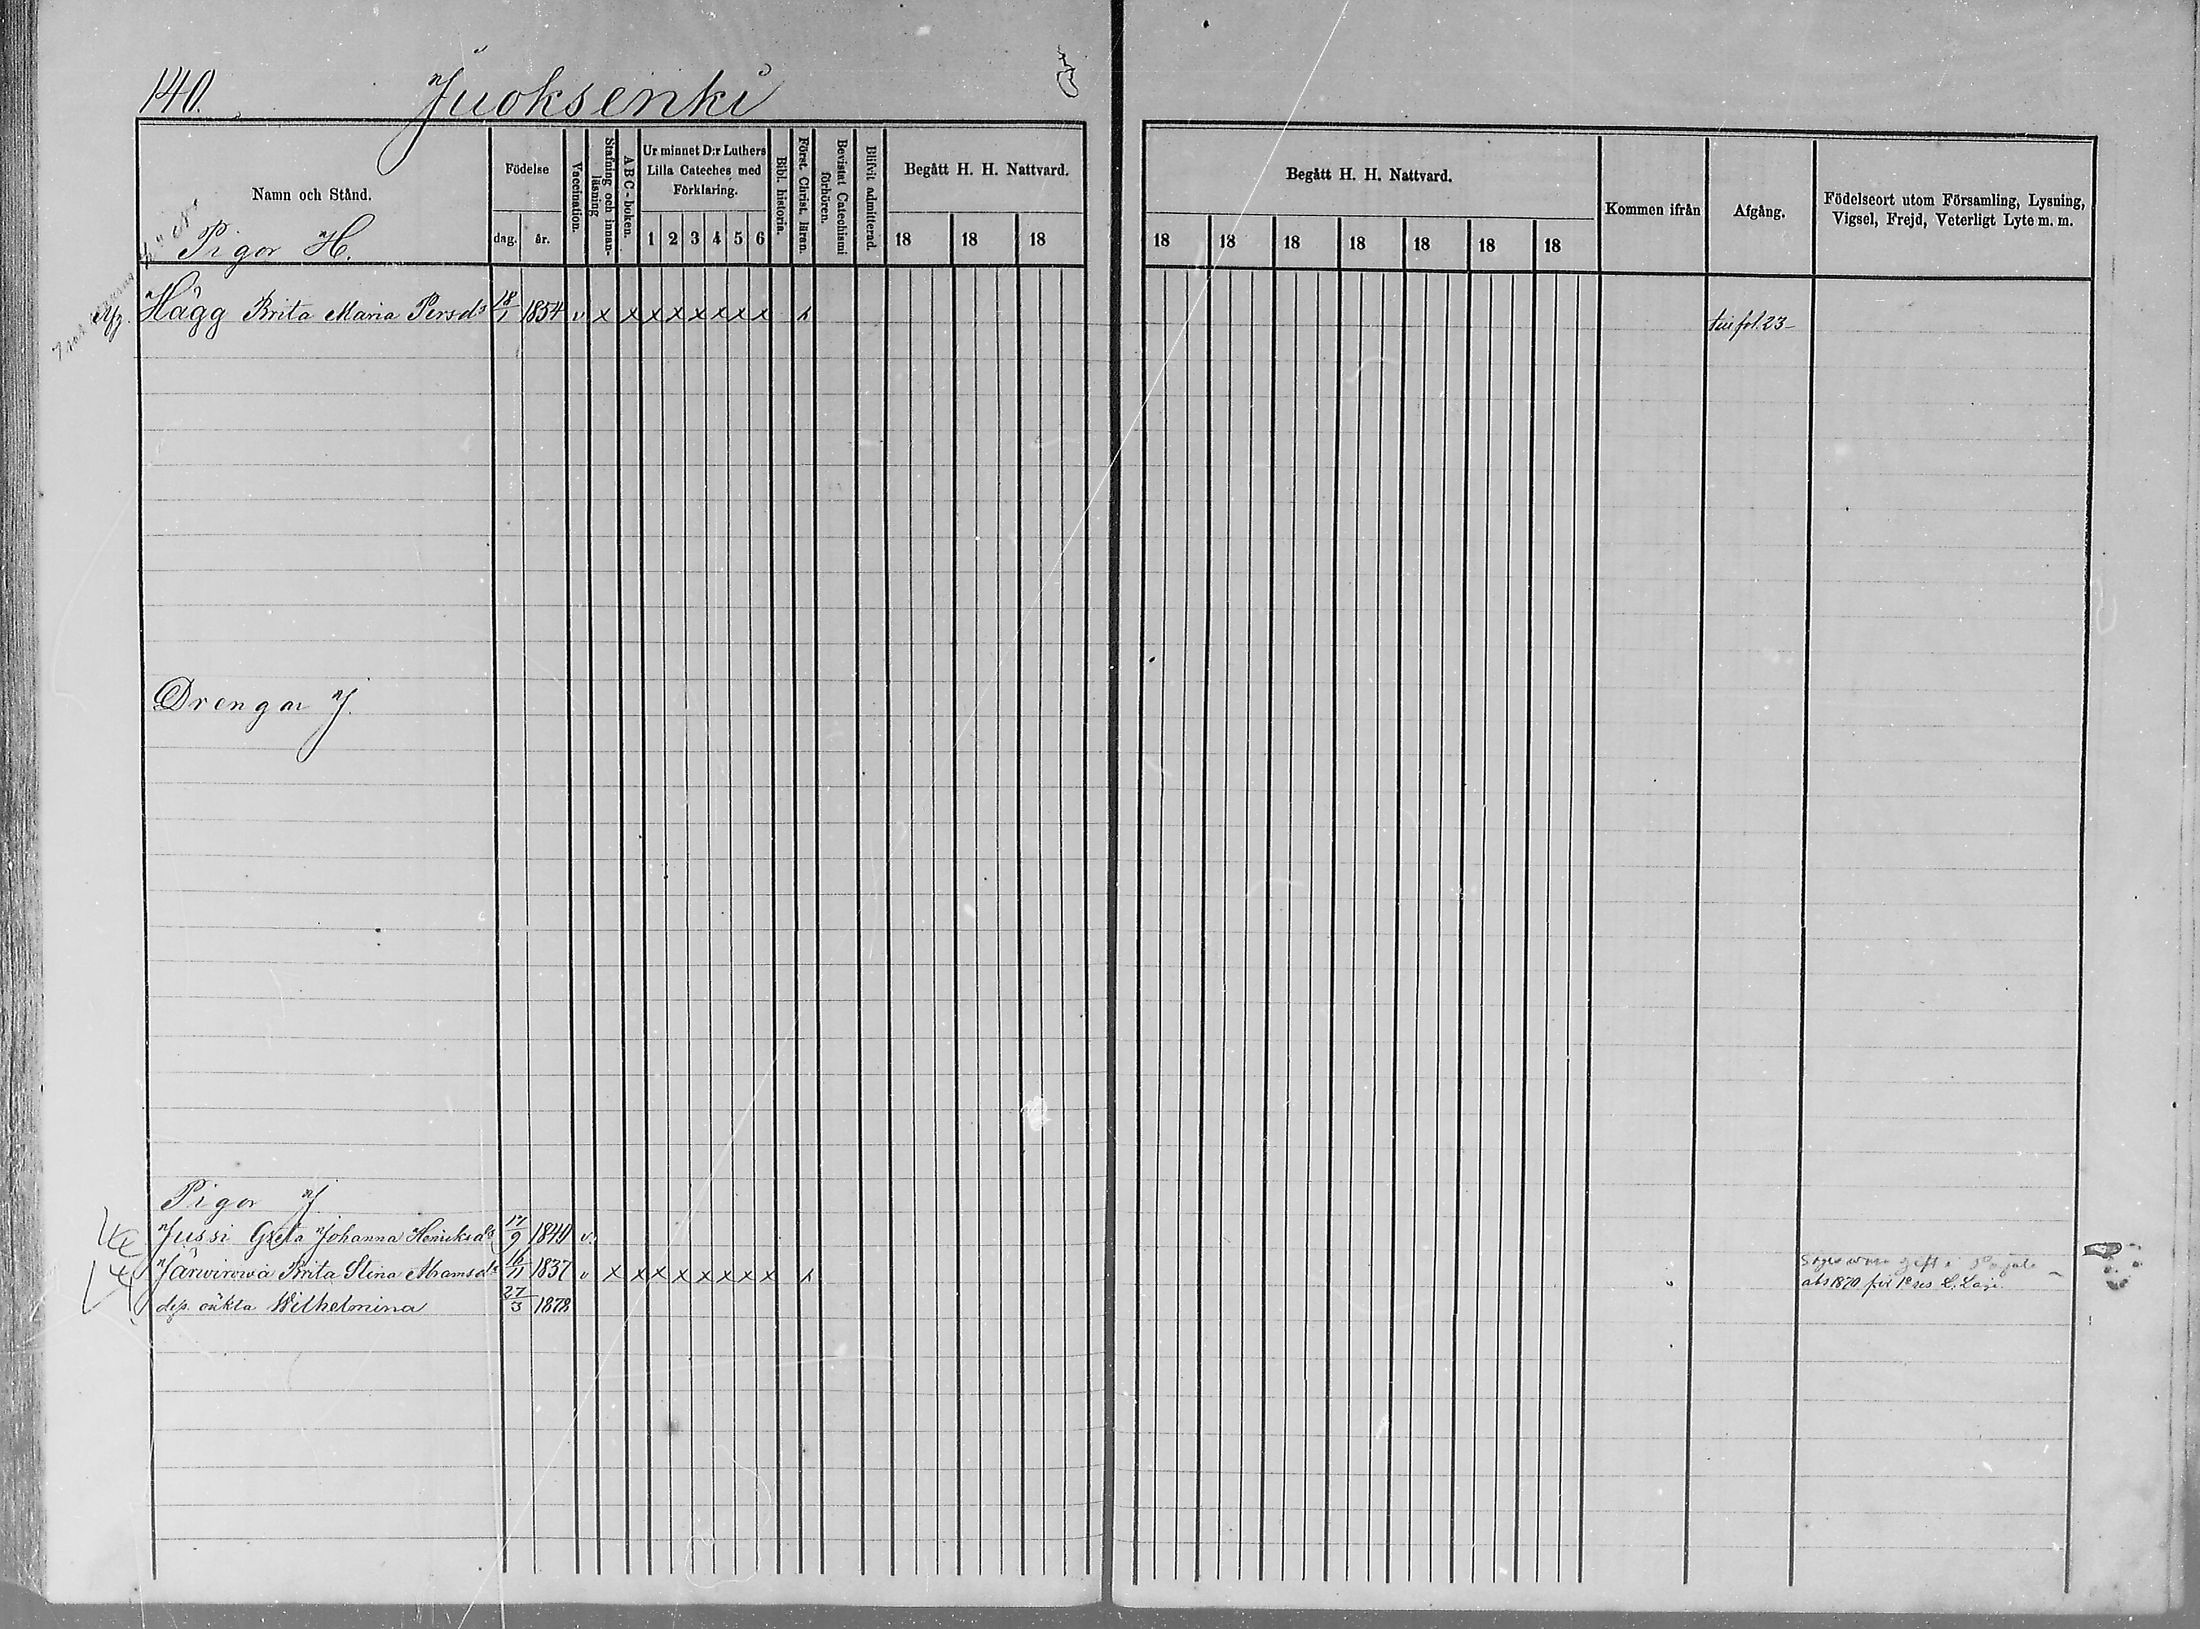 140.
Juoksenki
Namn och Stånd.
Födelse
dag.
år.
Vaccination.
Stafning och innan-
läsning
A B C-boken.
Ur minnet D:r Luthers
Lilla Cateches med
Förklaring.
1 2 3 4 5 6
Bibl. historia.
Först. Christ. läran.
Bevistat Catechismi
förhören.
Blifvit admitterad.
Begått H. H. Nattvard.
18 18 18
Begått H. H. Nattvard.
18 18 18 18 18 18 18
Kommen ifrån
Afgång.
Födelseort utom Församling, Lysning,
Vigsel, Frejd, Veterligt Lyte m. m.
Pigor H.
Hägg Brita Maria Persdr 18/1 1854 v x x x x x x x x x
fol. 23
Drengar J.
Pigor J
Jussi Greta Johanna Henriksdr 17/9 1849 v.
Brita Stina Abramsdr 16/11 1837 v x x x x x x x x x
des. oäkta Wilhelmina 27/3 1878
1870